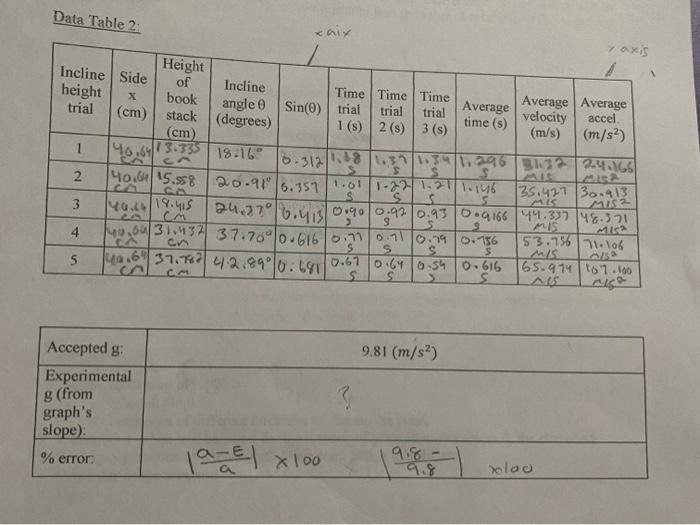 Data Table 2:
x aix
y axis
Incline height trial | Side x (cm) | Height of book stack (cm) | Incline angle θ (degrees) | Sin(θ) | Time trial 1 (s) | Time trial 2 (s) | Time trial 3 (s) | Average time (s) | Average velocity (m/s) | Average accel. (m/s²)
1 | 40.64 cm | 13.335 cm | 18.16° | 0.312 | s | 1.37 s | 1.34 s | 1.296 s | 31.32 m/s | 24.166 m/s2
2 | 40.64 cm | 15.558 cm | 20.91° | 0.357 | 1.01 s | 1.22 s | 1.21 s | 1.146 s | 35.427 m/s | 30.913 m/s2
3 | 40.64 cm | 18.415 cm | 24.37° | 0.413 | 0.90 s | 0.92 s | 0.93 s | 0.9166 s | 44.337 m/s | 48.371 m/s2
4 | 40.64 cm | 31.432 cm | 37.70° | 0.616 | 0.77 s | 0.71 s | 0.79 s | 0.756 s | 53.756 m/s | 71.106 m/s2
5 | 40.64 cm | 37.782 cm | 42.89° | 0.681 | 0.67 s | 0.64 s | 0.54 s | 0.616 s | 65.974 m/s | 107.100 m/s2
Accepted g: | 9.81 (m/s²)
Experimental g (from graph's slope): | ?
% error: | |a-E/a| x100 |9.8 - /9.8| x100